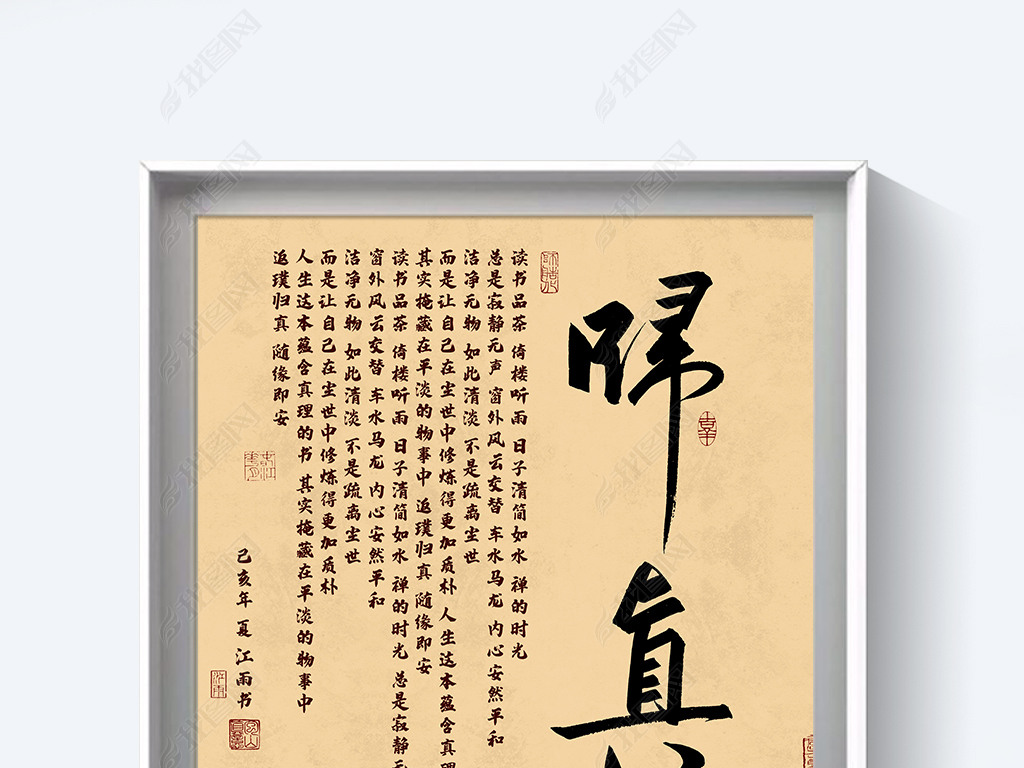 歸真
读书品茶 倚楼听雨 日子清简如水 禅的时光
总是寂静无声 窗外风云交替 车水马龙 内心安然平和
洁净无物 如此清淡 不是疏离尘世
而是让自己在尘世中修炼得更加质朴 人生这本蕴含真理
其实掩藏在平淡的物事中 返璞归真 随缘即安
读书品茶 倚楼听雨 日子清简如水 禅的时光 总是寂静无
窗外风云交替 车水马龙 内心安然平和
洁净无物 如此清淡 不是疏离尘世
而是让自己在尘世中修炼得更加质朴
人生这本蕴含真理的书 其实掩藏在平淡的物事中
返璞归真 随缘即安
己亥年 夏 江雨书
江雨
我图网